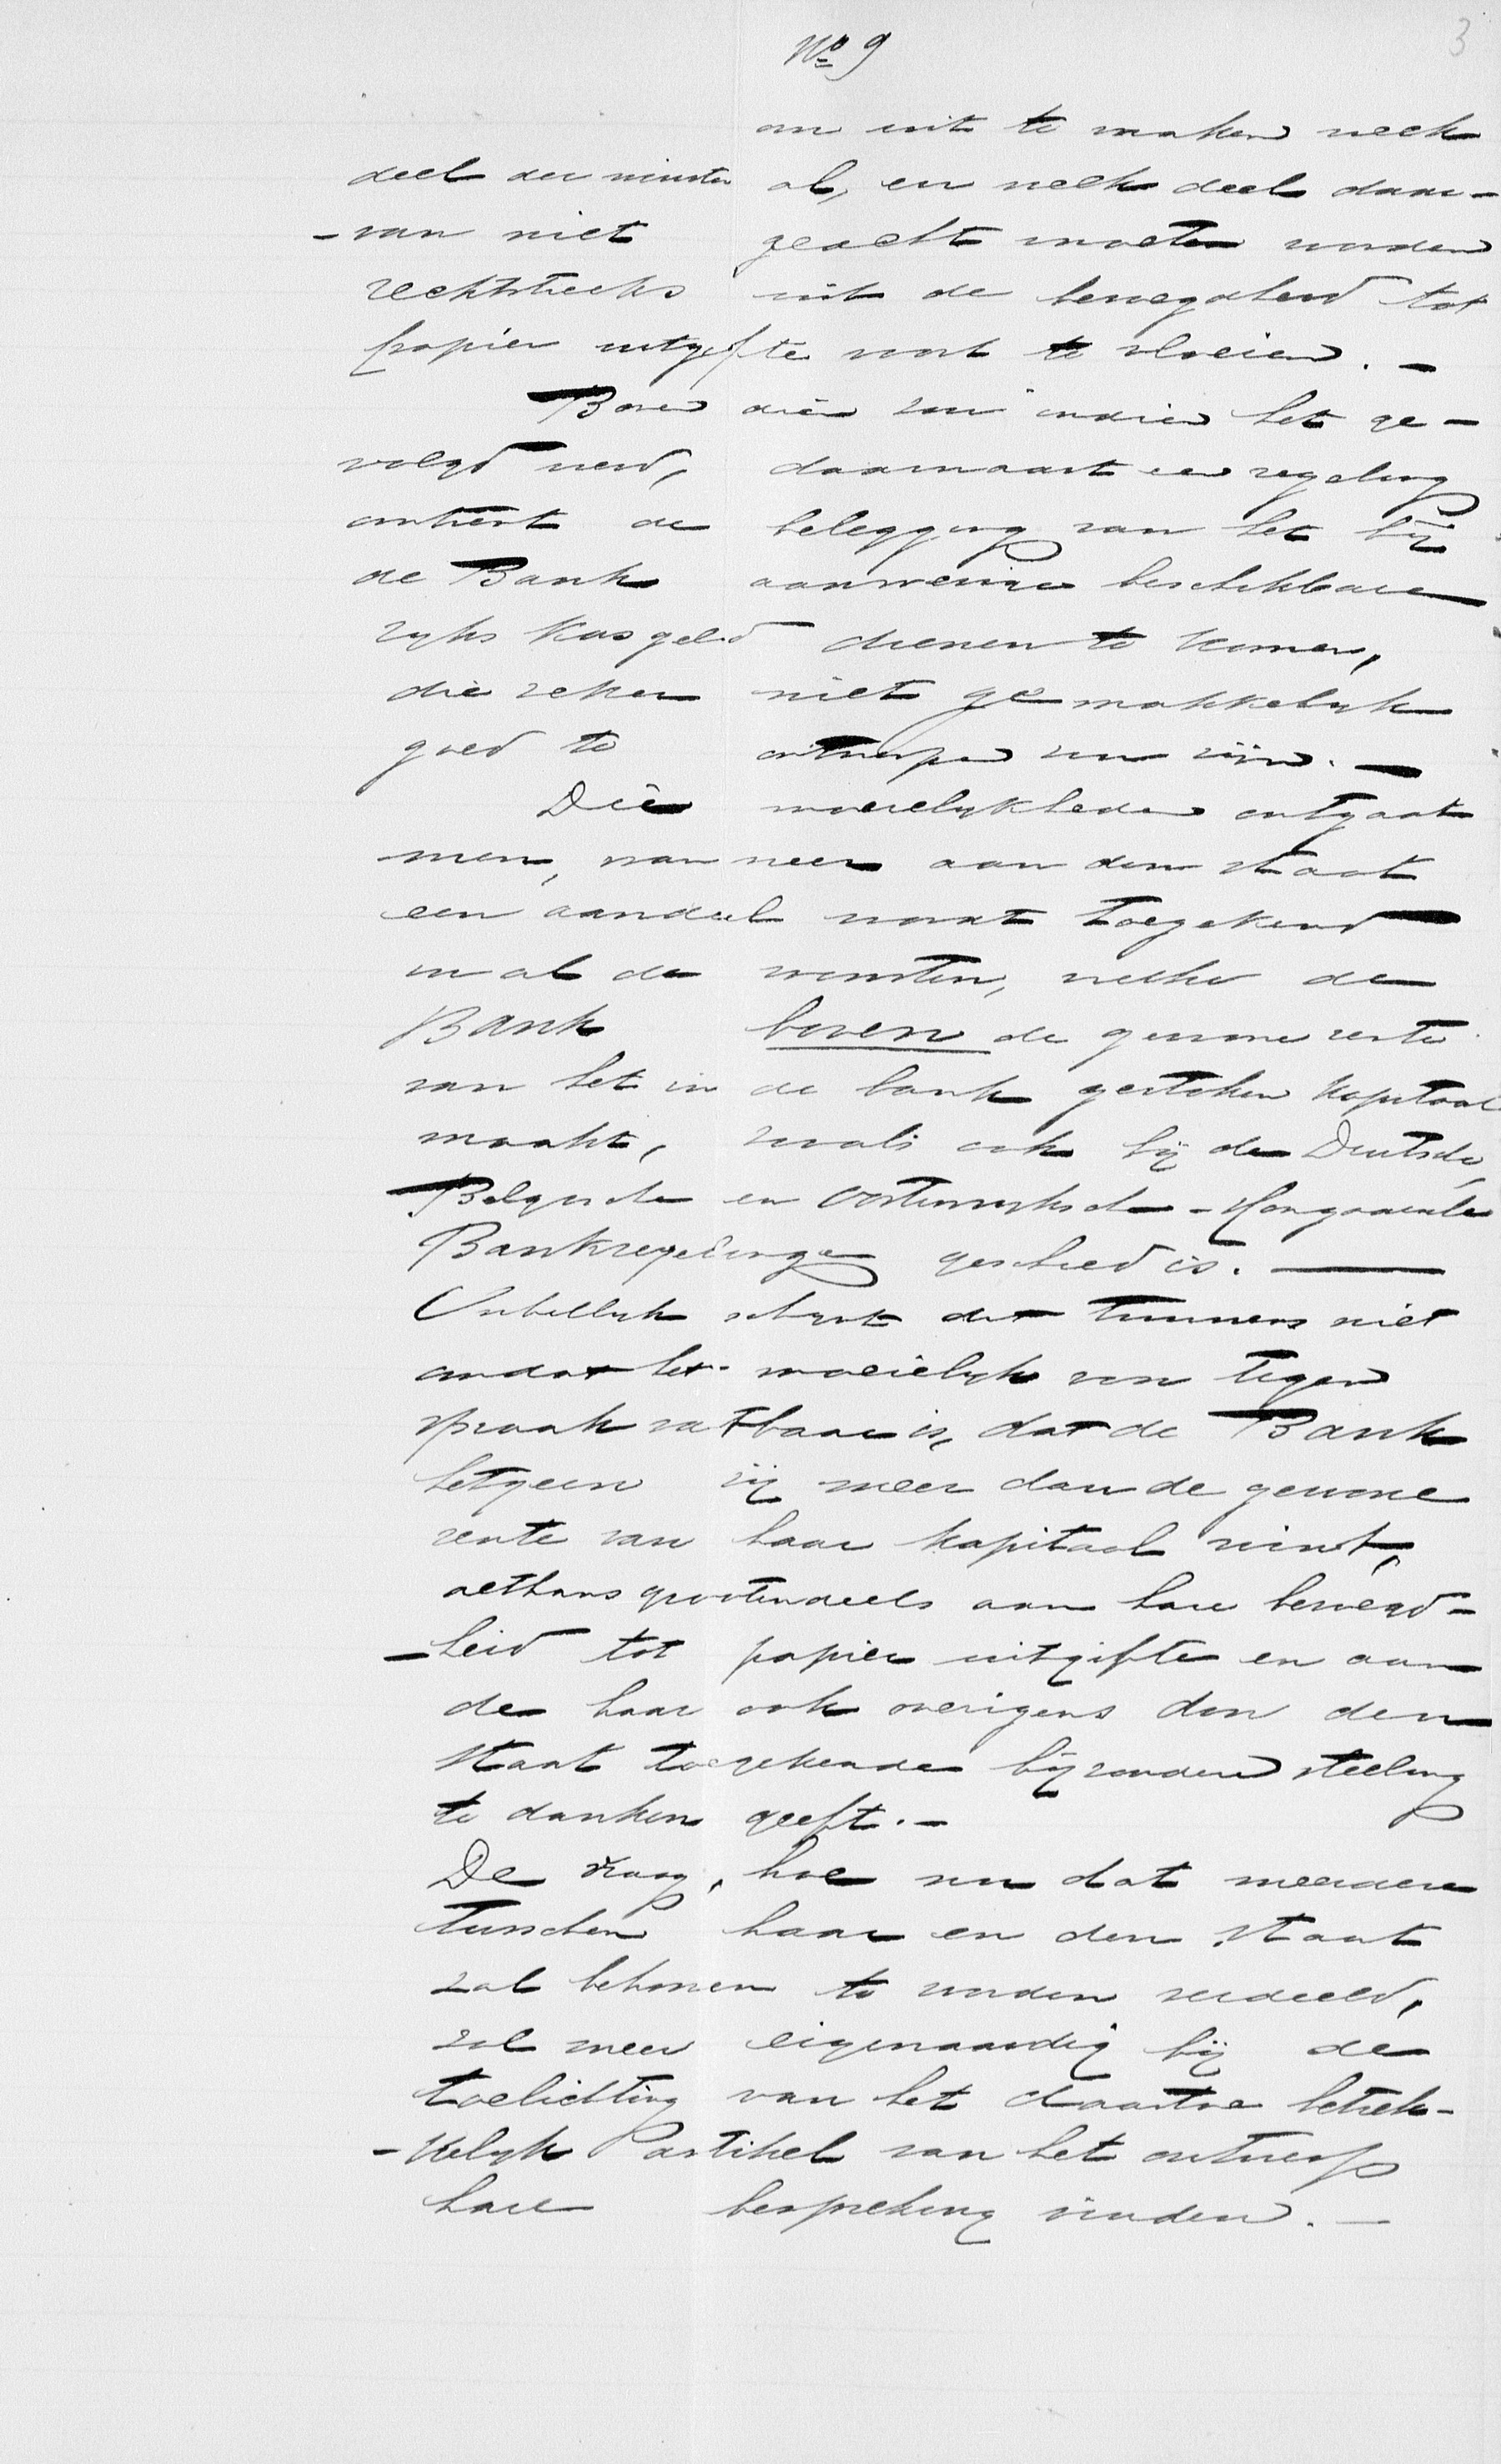 No 9
3
om uit te maken welk
deel der winsten al, en welk deel daar-
-van niet geacht moeten worden
rechtstreeks uit de bevoegdheid tot
papier uitgifte voort te vloeien. -
Boven dien zou indien het ge-
volgd werd, daarnaast een regeling
omtrent de belegging van het bij
de Bank aanwezige beschikbare
rijks kasgeld dienen te komen,
die zeker niet gemakkelijk
goed te ontwerpen zou zijn. -
Die moeielijkheden ontgaat
men, wanneer aan den staat
een aandeel wordt toegekend
in al de winsten, welke de
Bank boven de gewone rente
van het in de bank gestoken kapitaal
maakt, zooals ook bij de Duitsche,
Belgische en Oostenrijksche - Hongaarsche
Bankregelingen geschied is. -
Onbillijk schijnt dit trouwens niet
omdat het moeielijk voor tegen
spraak vatbaar is, dat de Bank
hetgeen zij meer dan de gewone
rente van haar kapitaal wint,
althans grootendeels aan hare bevoegd-
-heid tot papier uitgifte en aan
de haar ook overigens door den
staat toegekende bijzondere stelling
te danken heeft. -
De vraag, hoe nu dat meerdere
tusschen haar en den staat
zal behooren te worden verdeeld,
zal meer eigenaardig bij de
toelichting van het daartoe betrek-
-kelijk artikel van het ontwerp
hare bespreking vinden. -